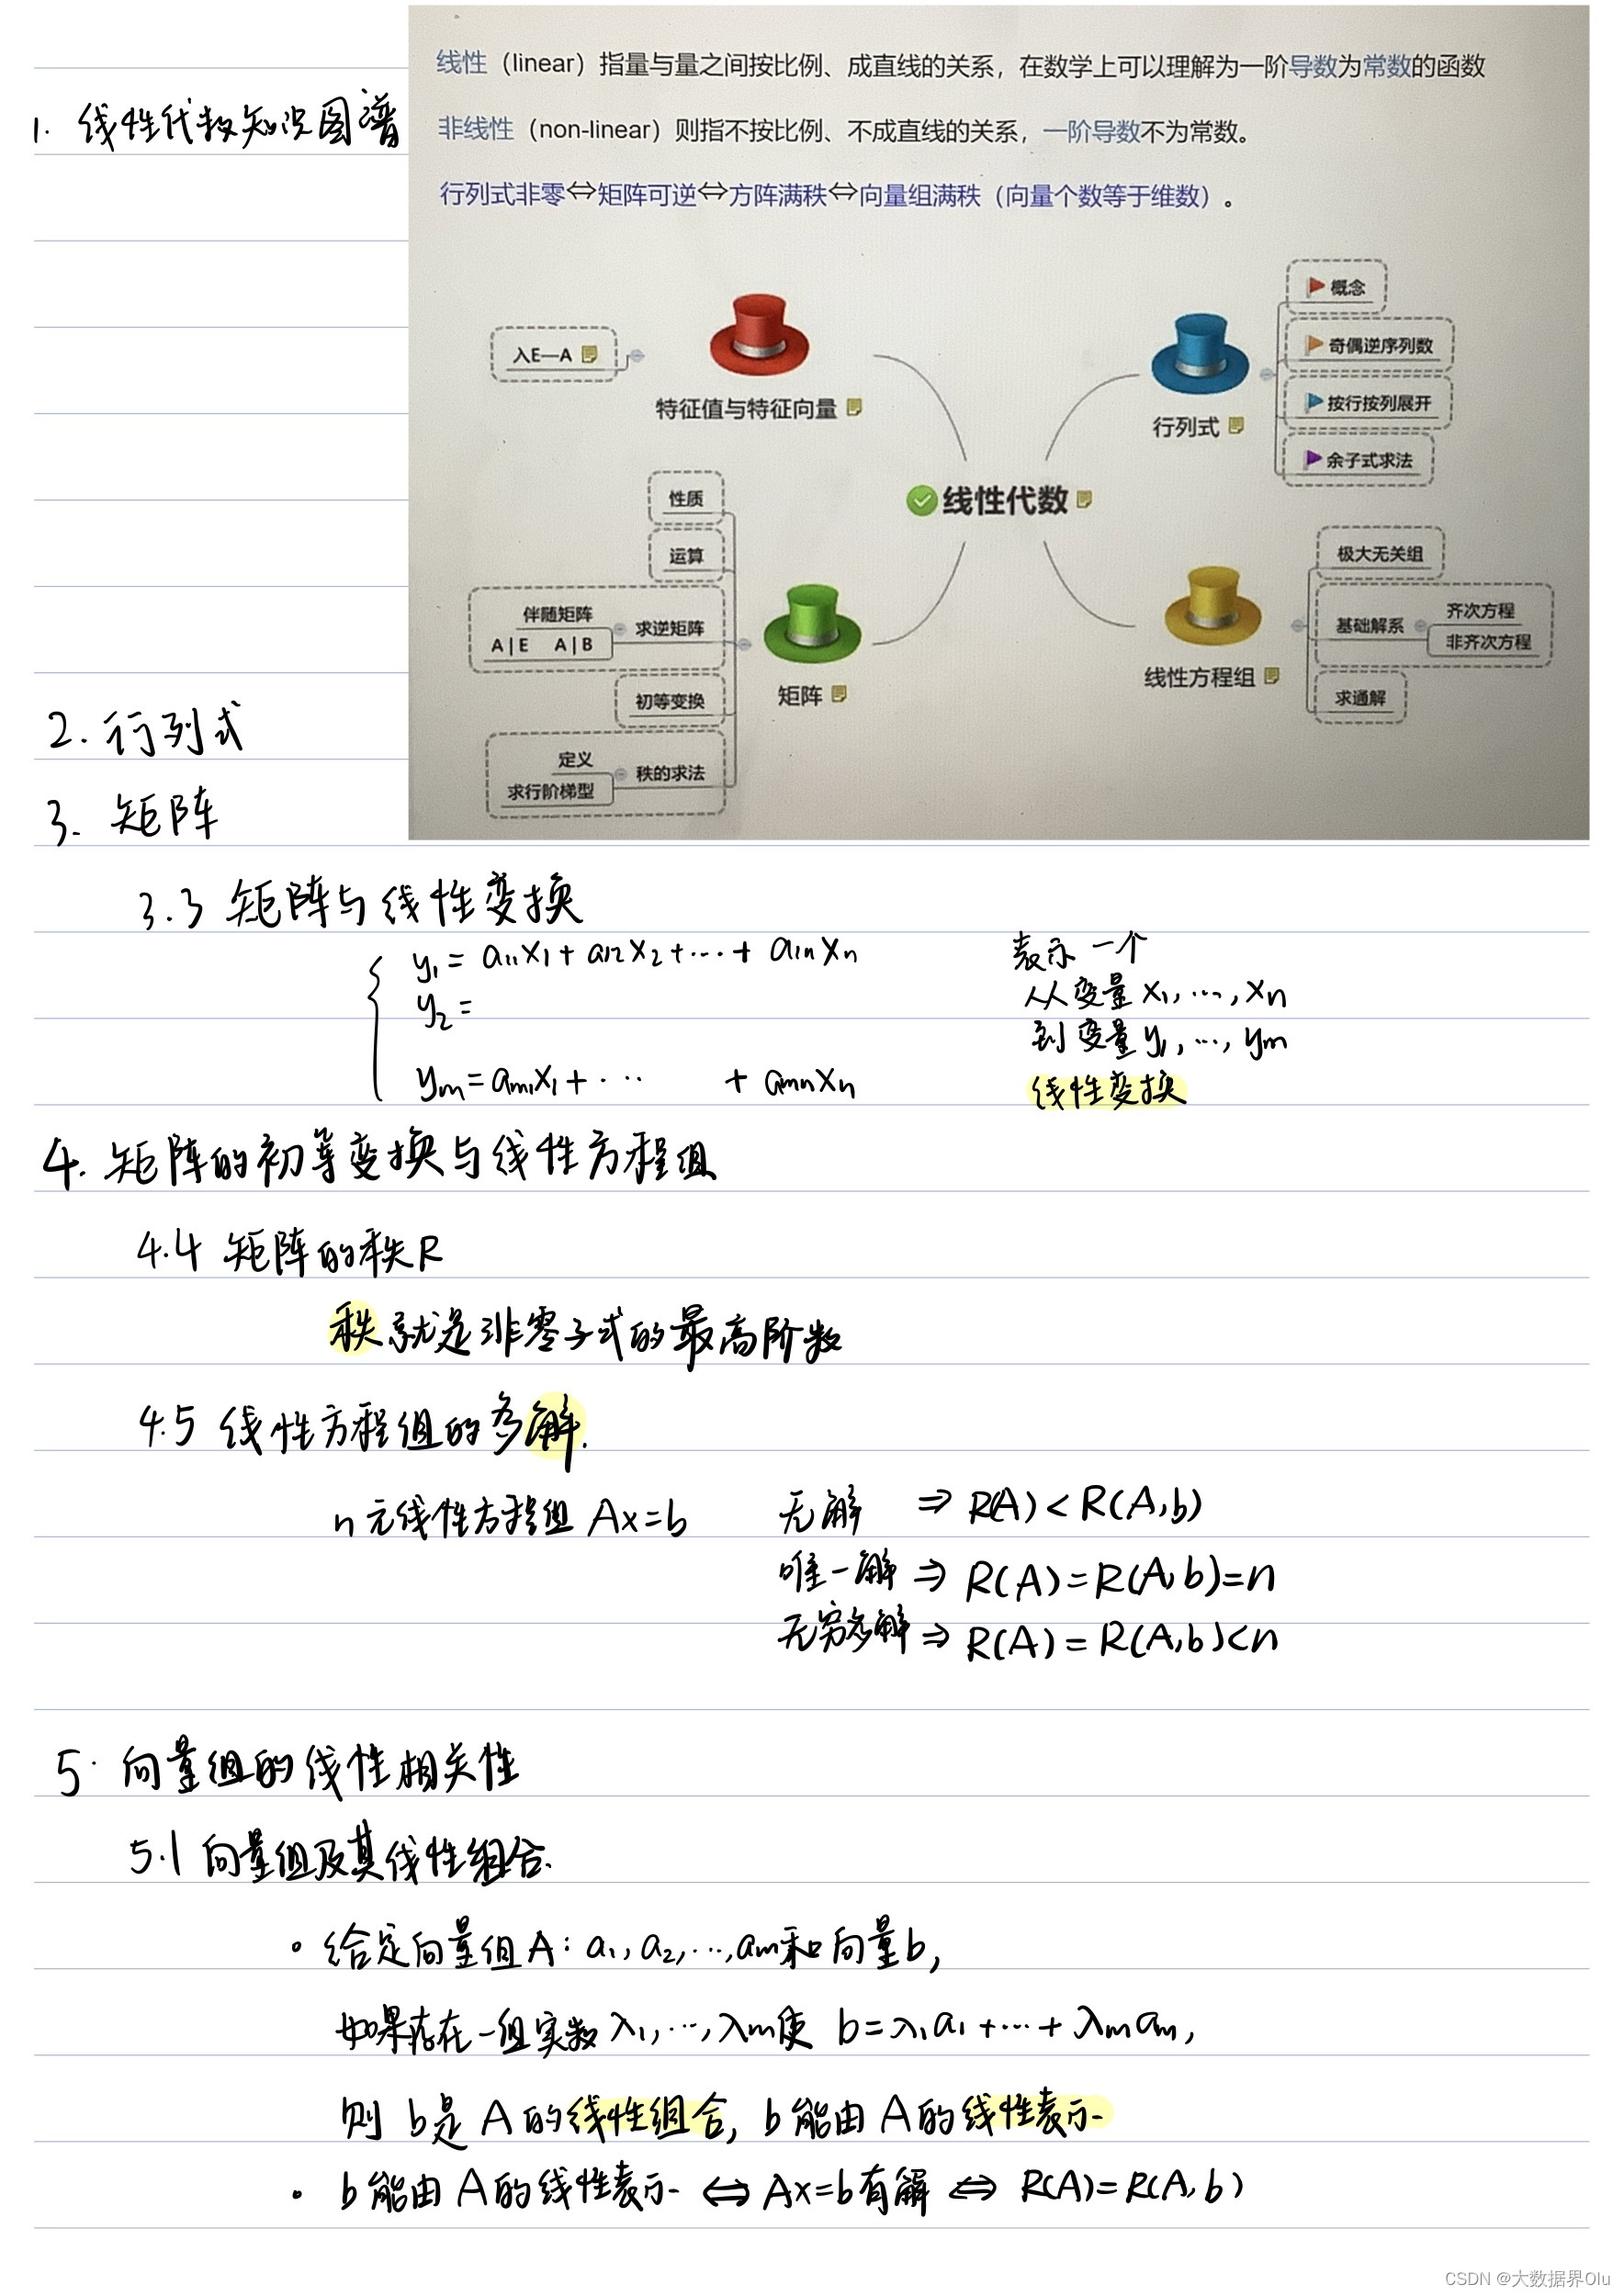 线性（linear）指量与量之间按比例、成直线的关系，在数学上可以理解为一阶导数为常数的函数
非线性（non-linear）则指不按比例、不成直线的关系，一阶导数不为常数。
行列式非零⇔矩阵可逆⇔方阵满秩⇔向量组满秩（向量个数等于维数）。
1. 线性代数知识图谱
线性代数
特征值与特征向量
入E—A
行列式
概念
奇偶逆序列数
按行按列展开
余子式求法
矩阵
性质
运算
求逆矩阵
伴随矩阵
A|E A|B
初等变换
秩的求法
定义
求行阶梯型
线性方程组
极大无关组
基础解系
齐次方程
非齐次方程
求通解
2. 行列式
3. 矩阵
3.3 矩阵与线性变换
y₁ = a₁₁x₁ + a₁₂x₂ + ⋯ + a₁ₙxₙ
y₂ =
yₘ = aₘ₁x₁ + ⋯ + aₘₙxₙ
表示一个
从变量 x₁, ⋯, xₙ
到变量 y₁, ⋯, yₘ
线性变换
4. 矩阵的初等变换与线性方程组
4.4 矩阵的秩R
秩就是非零子式的最高阶数
4.5 线性方程组的多解.
n元线性方程组 Ax=b
无解 ⇒ R(A) < R(A,b)
唯一解 ⇒ R(A)=R(A,b)=n
无穷多解 ⇒ R(A) = R(A,b)<n
5. 向量组的线性相关性
5.1 向量组及其线性组合.
• 给定向量组A: a₁, a₂, ⋯, aₘ和向量b,
如果存在一组实数 λ₁, ⋯, λₘ使 b=λ₁a₁+⋯+λₘaₘ,
则 b是 A的线性组合, b能由 A的线性表示
• b能由 A的线性表示 ⇔ Ax=b有解 ⇔ R(A)=R(A,b)
CSDN @大数据界Olu